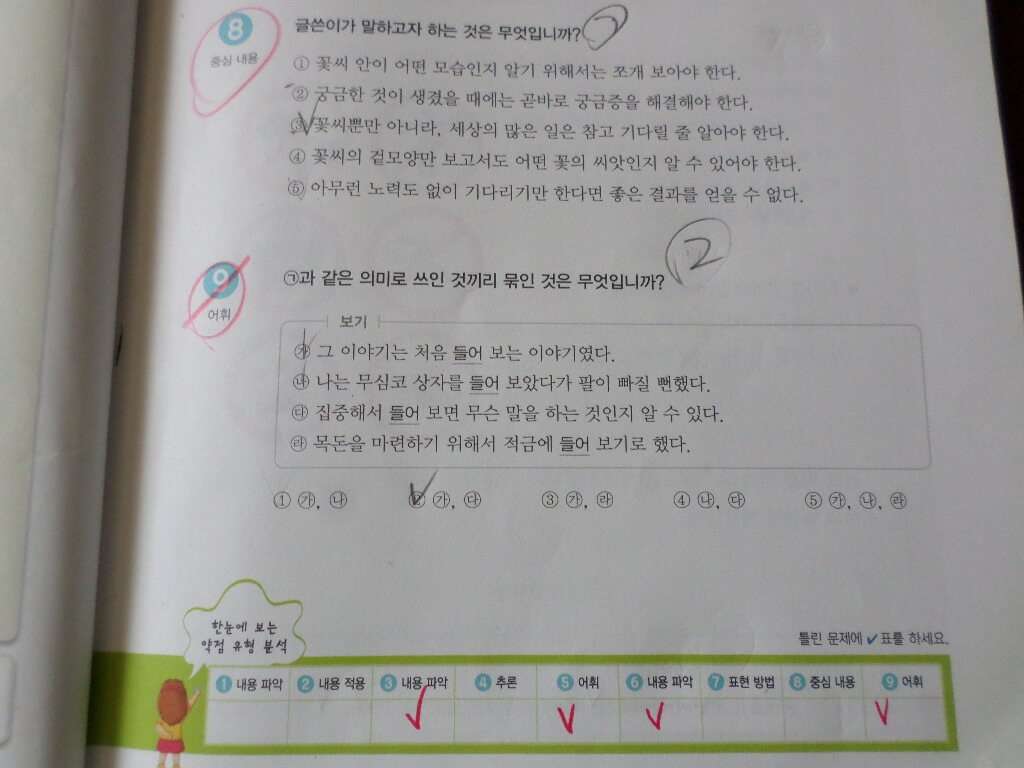 8
글쓴이가 말하고자 하는 것은 무엇입니까?
중심 내용
① 꽃씨 안이 어떤 모습인지 알기 위해서는 쪼개 보아야 한다.
② 궁금한 것이 생겼을 때에는 곧바로 궁금증을 해결해야 한다.
③ 꽃씨뿐만 아니라, 세상의 많은 일은 참고 기다릴 줄 알아야 한다.
④ 꽃씨의 겉모양만 보고서도 어떤 꽃의 씨앗인지 알 수 있어야 한다.
⑤ 아무런 노력도 없이 기다리기만 한다면 좋은 결과를 얻을 수 없다.
2
9
㉠과 같은 의미로 쓰인 것끼리 묶인 것은 무엇입니까?
어휘
보기
㉮ 그 이야기는 처음 들어 보는 이야기였다.
㉯ 나는 무심코 상자를 들어 보았다가 팔이 빠질 뻔했다.
㉰ 집중해서 들어 보면 무슨 말을 하는 것인지 알 수 있다.
㉱ 목돈을 마련하기 위해서 적금에 들어 보기로 했다.
① ㉮, ㉯ ② ㉮, ㉰ ③ ㉮, ㉱ ④ ㉯, ㉰ ⑤ ㉮, ㉯, ㉱
한눈에 보는
약점 유형 분석
틀린 문제에 ✔표를 하세요.
❶ 내용 파악 ❷ 내용 적용 ❸ 내용 파악 ❹ 추론 ❺ 어휘 ❻ 내용 파악 ❼ 표현 방법 ❽ 중심 내용 ❾ 어휘